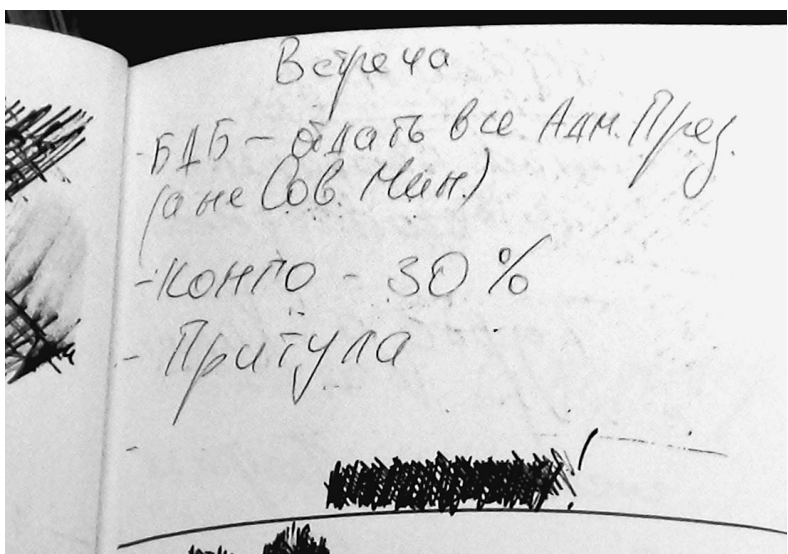 Встреча
- БДБ – отдать все Адм. През.
(а не Сов. Мин.)
- Конго - 30 %
- Притула
-